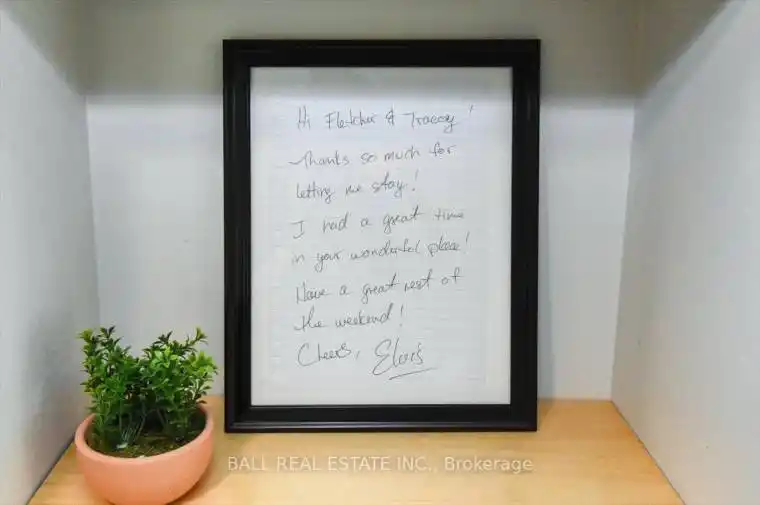 Hi Fletcher & Tracey!
Thanks so much for
letting me stay!
I had a great time
in your wonderful place!
Have a great rest of
the weekend!
Cheers, Elvis
BALL REAL ESTATE INC., Brokerage